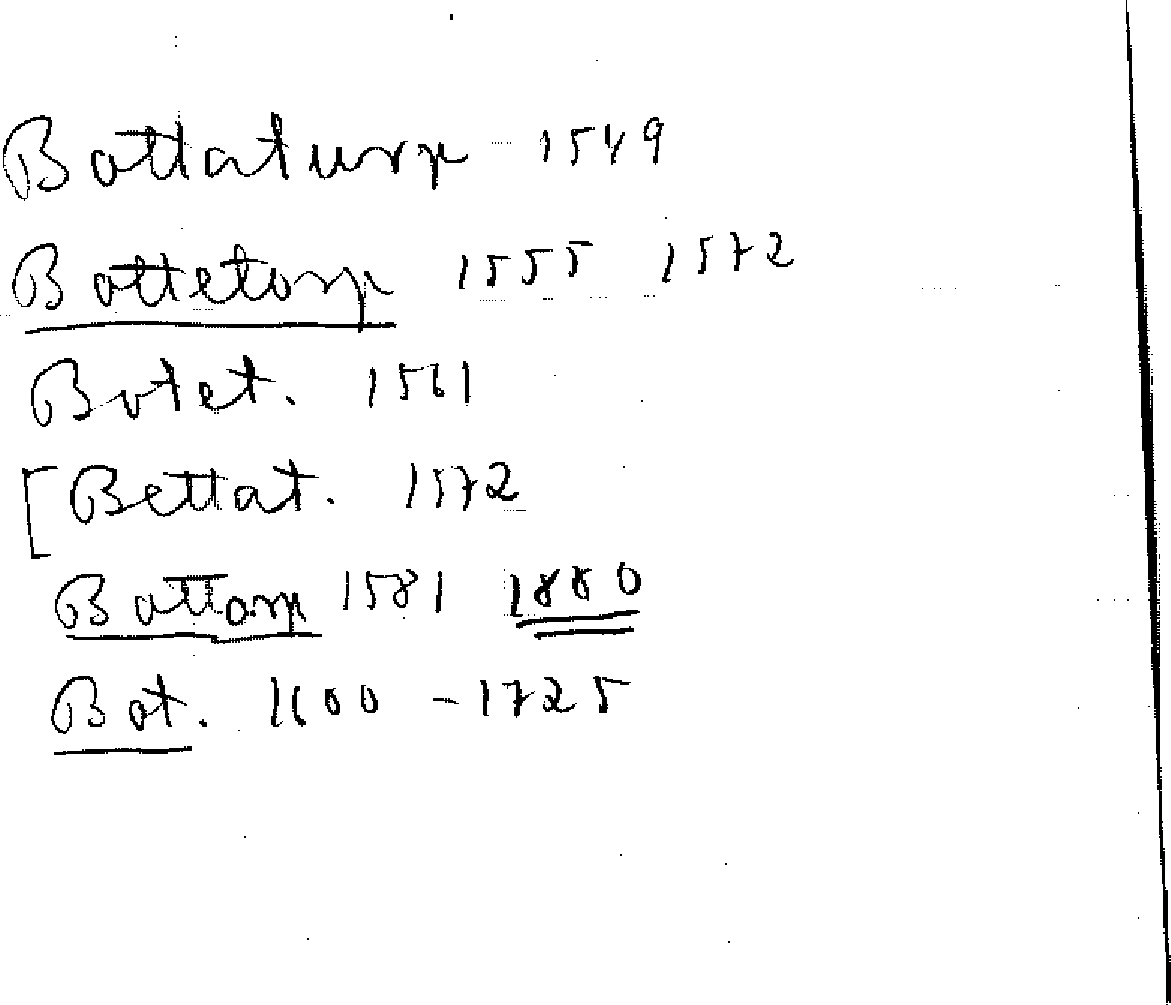 Battaturp 1549
Battetorp 1555 1572
Botet. 1561
[Bettat. 1572
Battorp 1581 1880
Bat. 1600 - 1725